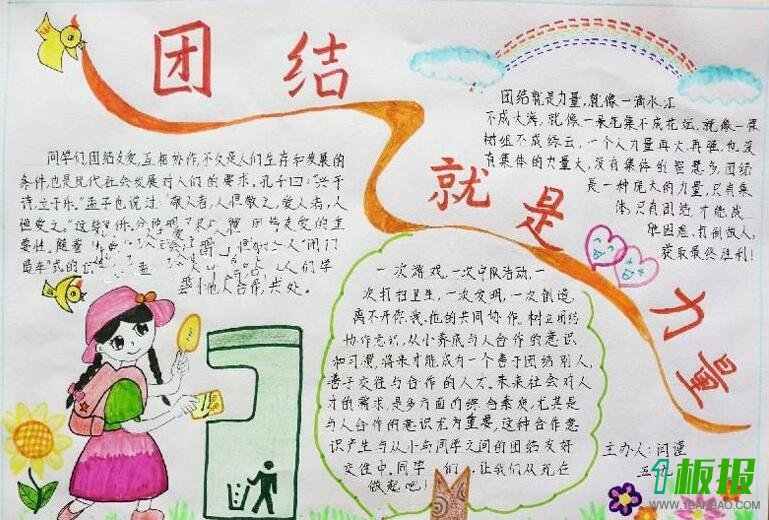 团结
就是
力量
同学们,团结友爱,互相协作,不仅是人们生存和发展的
条件,也是现代社会发展对人们的要求。孔子曰:"兴于
诗,立于乐。"孟子也说过:"敬人者,人恒敬之,爱人者,人
恒爱之。"这
要性。随着
人合作,共处。
团结就是力量,就像一滴水,汇
不成大海,就像一朵花集不成花坛,就像一棵
树组不成绿云,一个人力量再大再强,也没
有集体的力量大,没有集体的智慧多,团结
是一种庞大的力量,只有集
体,只有团结,才能战
胜困难,打倒敌人,
获取最终胜利!
一次游戏,一次中队活动,一
次打扫卫生,一次发明,一次创造,
离不开你、我、他的共同协作。树立团结
协作意识,从小养成与人合作的意识
和习惯,将来才能成为一个善于团结别人,
善于交往与合作的人才。未来社会对人
才的需求,是多方面的综合素质,尤其是
与人合作的意识尤为重要,这种合作意
识产生与从小与同学之间的团结友好
交往中。同学们,让我们从现在
做起吧!
主办人:闫谨
五.九
板报
WWW.1BANBAO.COM